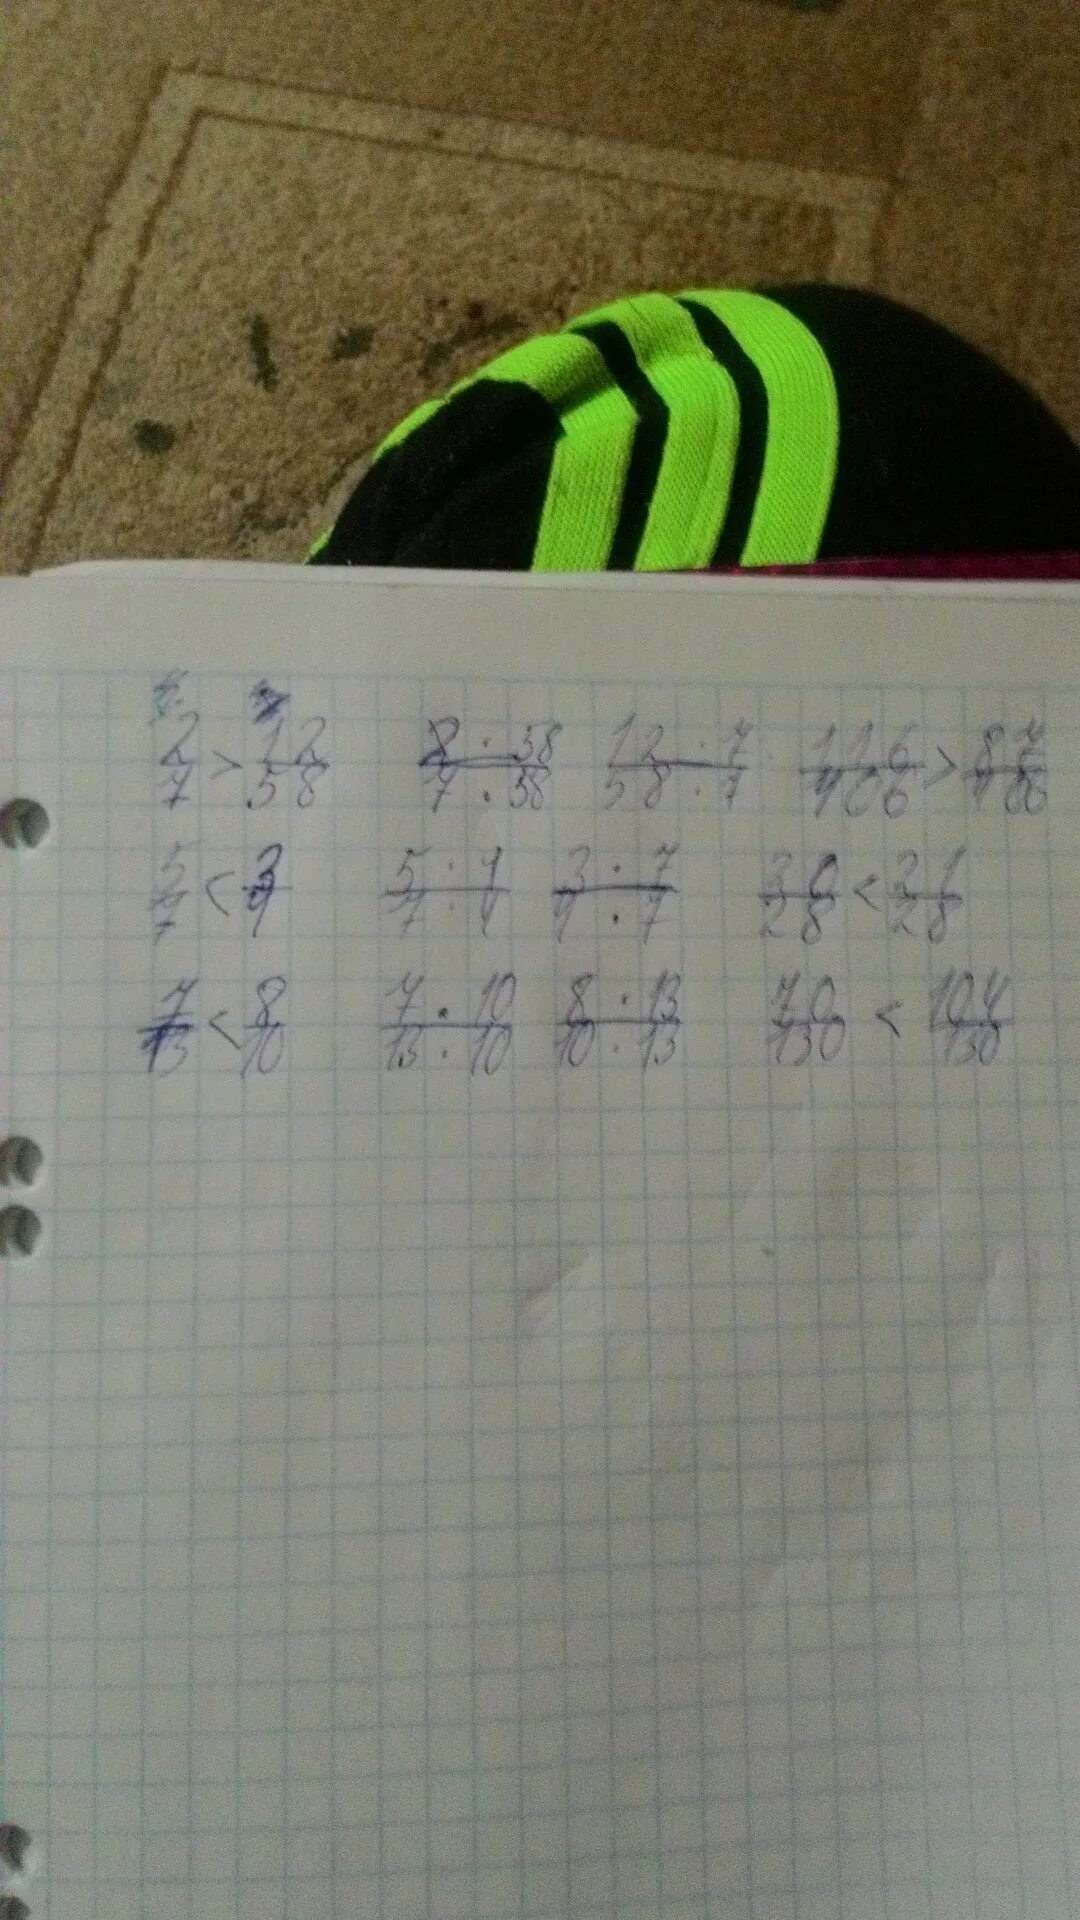 2/7 > 12/58   2·58/7·58   12·7/58·7   116/406 > 87/406
5/7 < 3/4   5·4/7·4   3·7/4·7   20/28 < 21/28
7/13 < 8/10   7·10/13·10   8·13/10·13   70/130 < 104/130